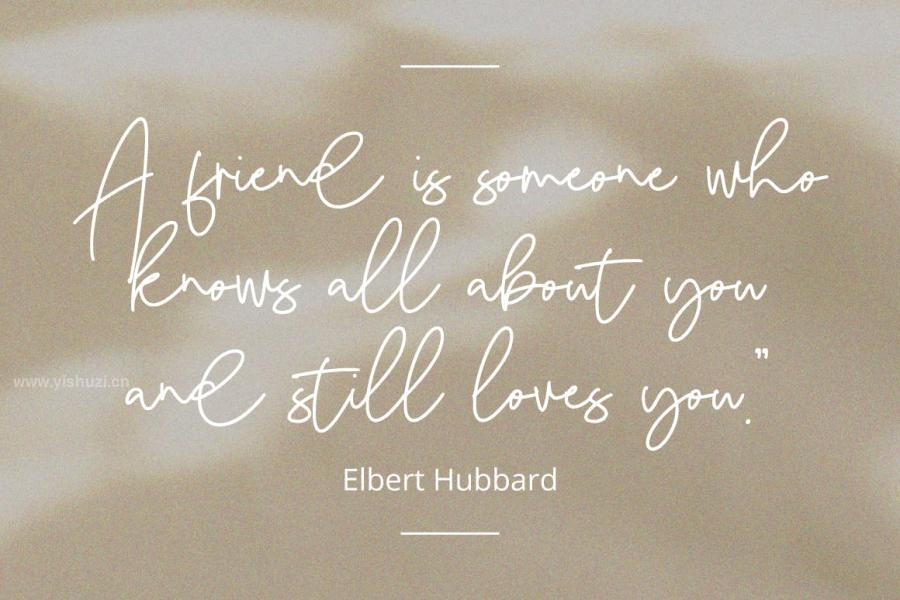 A friend is someone who
knows all about you
and still loves you."
www.yishuzi.cn
Elbert Hubbard